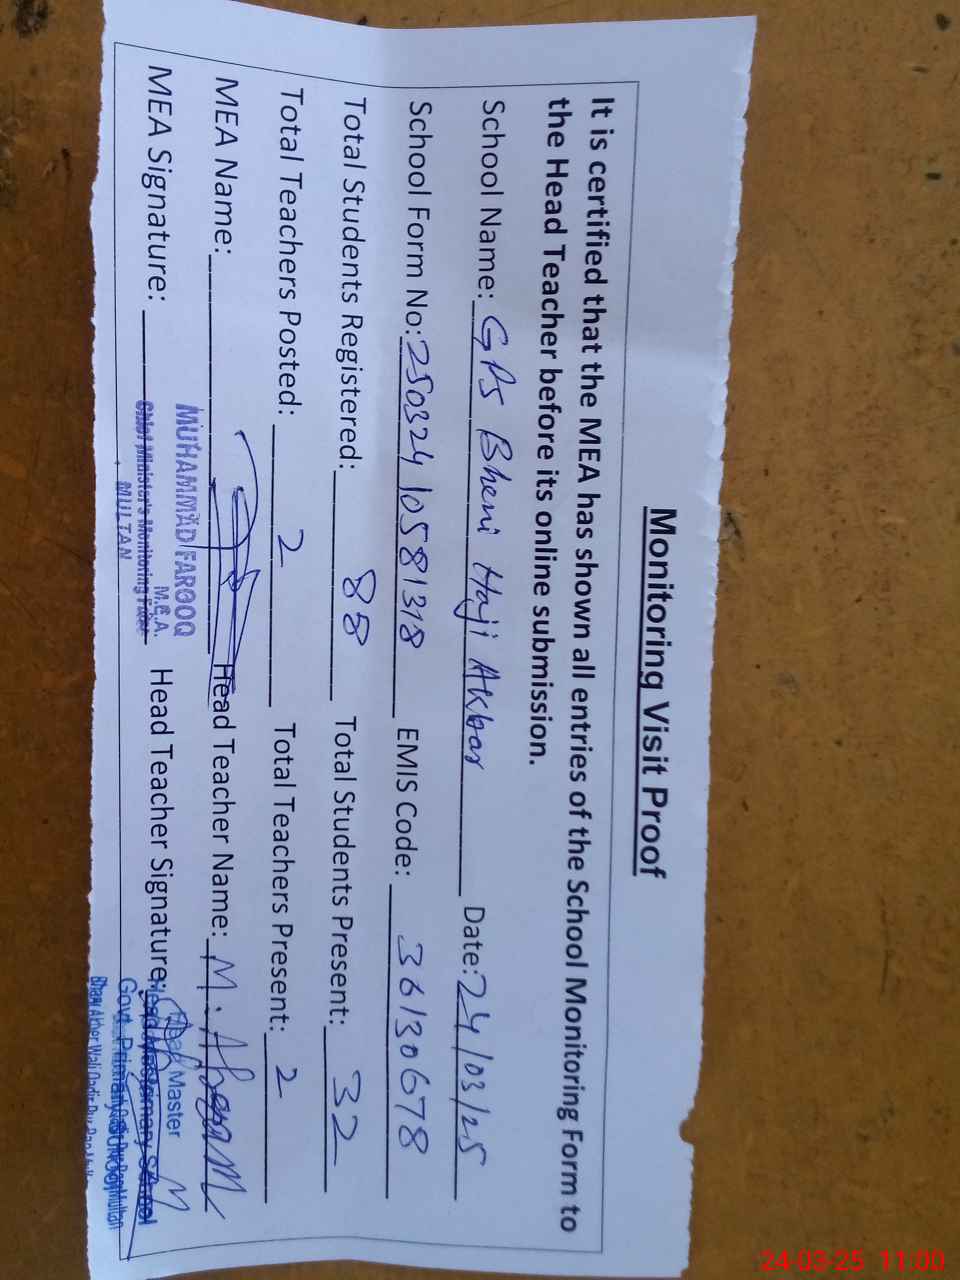 Monitoring Visit Proof
It is certified that the MEA has shown all entries of the School Monitoring Form to
the Head Teacher before its online submission.
School Name: GPS Bheni Haji Akbar Date: 24/03/25
School Form No: 250324 10581318 EMIS Code: 36130678
Total Students Registered: 88 Total Students Present: 32
Total Teachers Posted: 2 Total Teachers Present: 2
MEA Name: Head Teacher Name: M. Akram
MUHAMMAD FAROOQ
M.E.A.
MEA Signature: Chief Minister's Monitoring Force Head Teacher Signature:
MULTAN
Head Master
Govt. Primary School
24-03-25 11:00